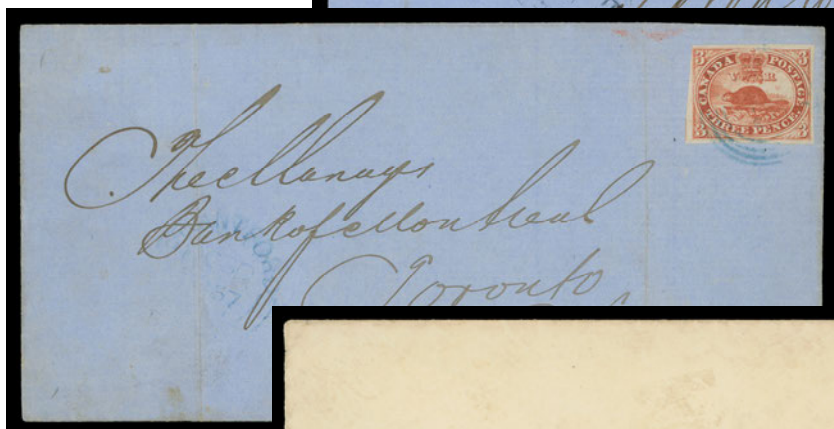 3 3
CANADA POSTAGE
V R
THREE PENCE
3 3
The Manager
Bank of Montreal
Toronto
57